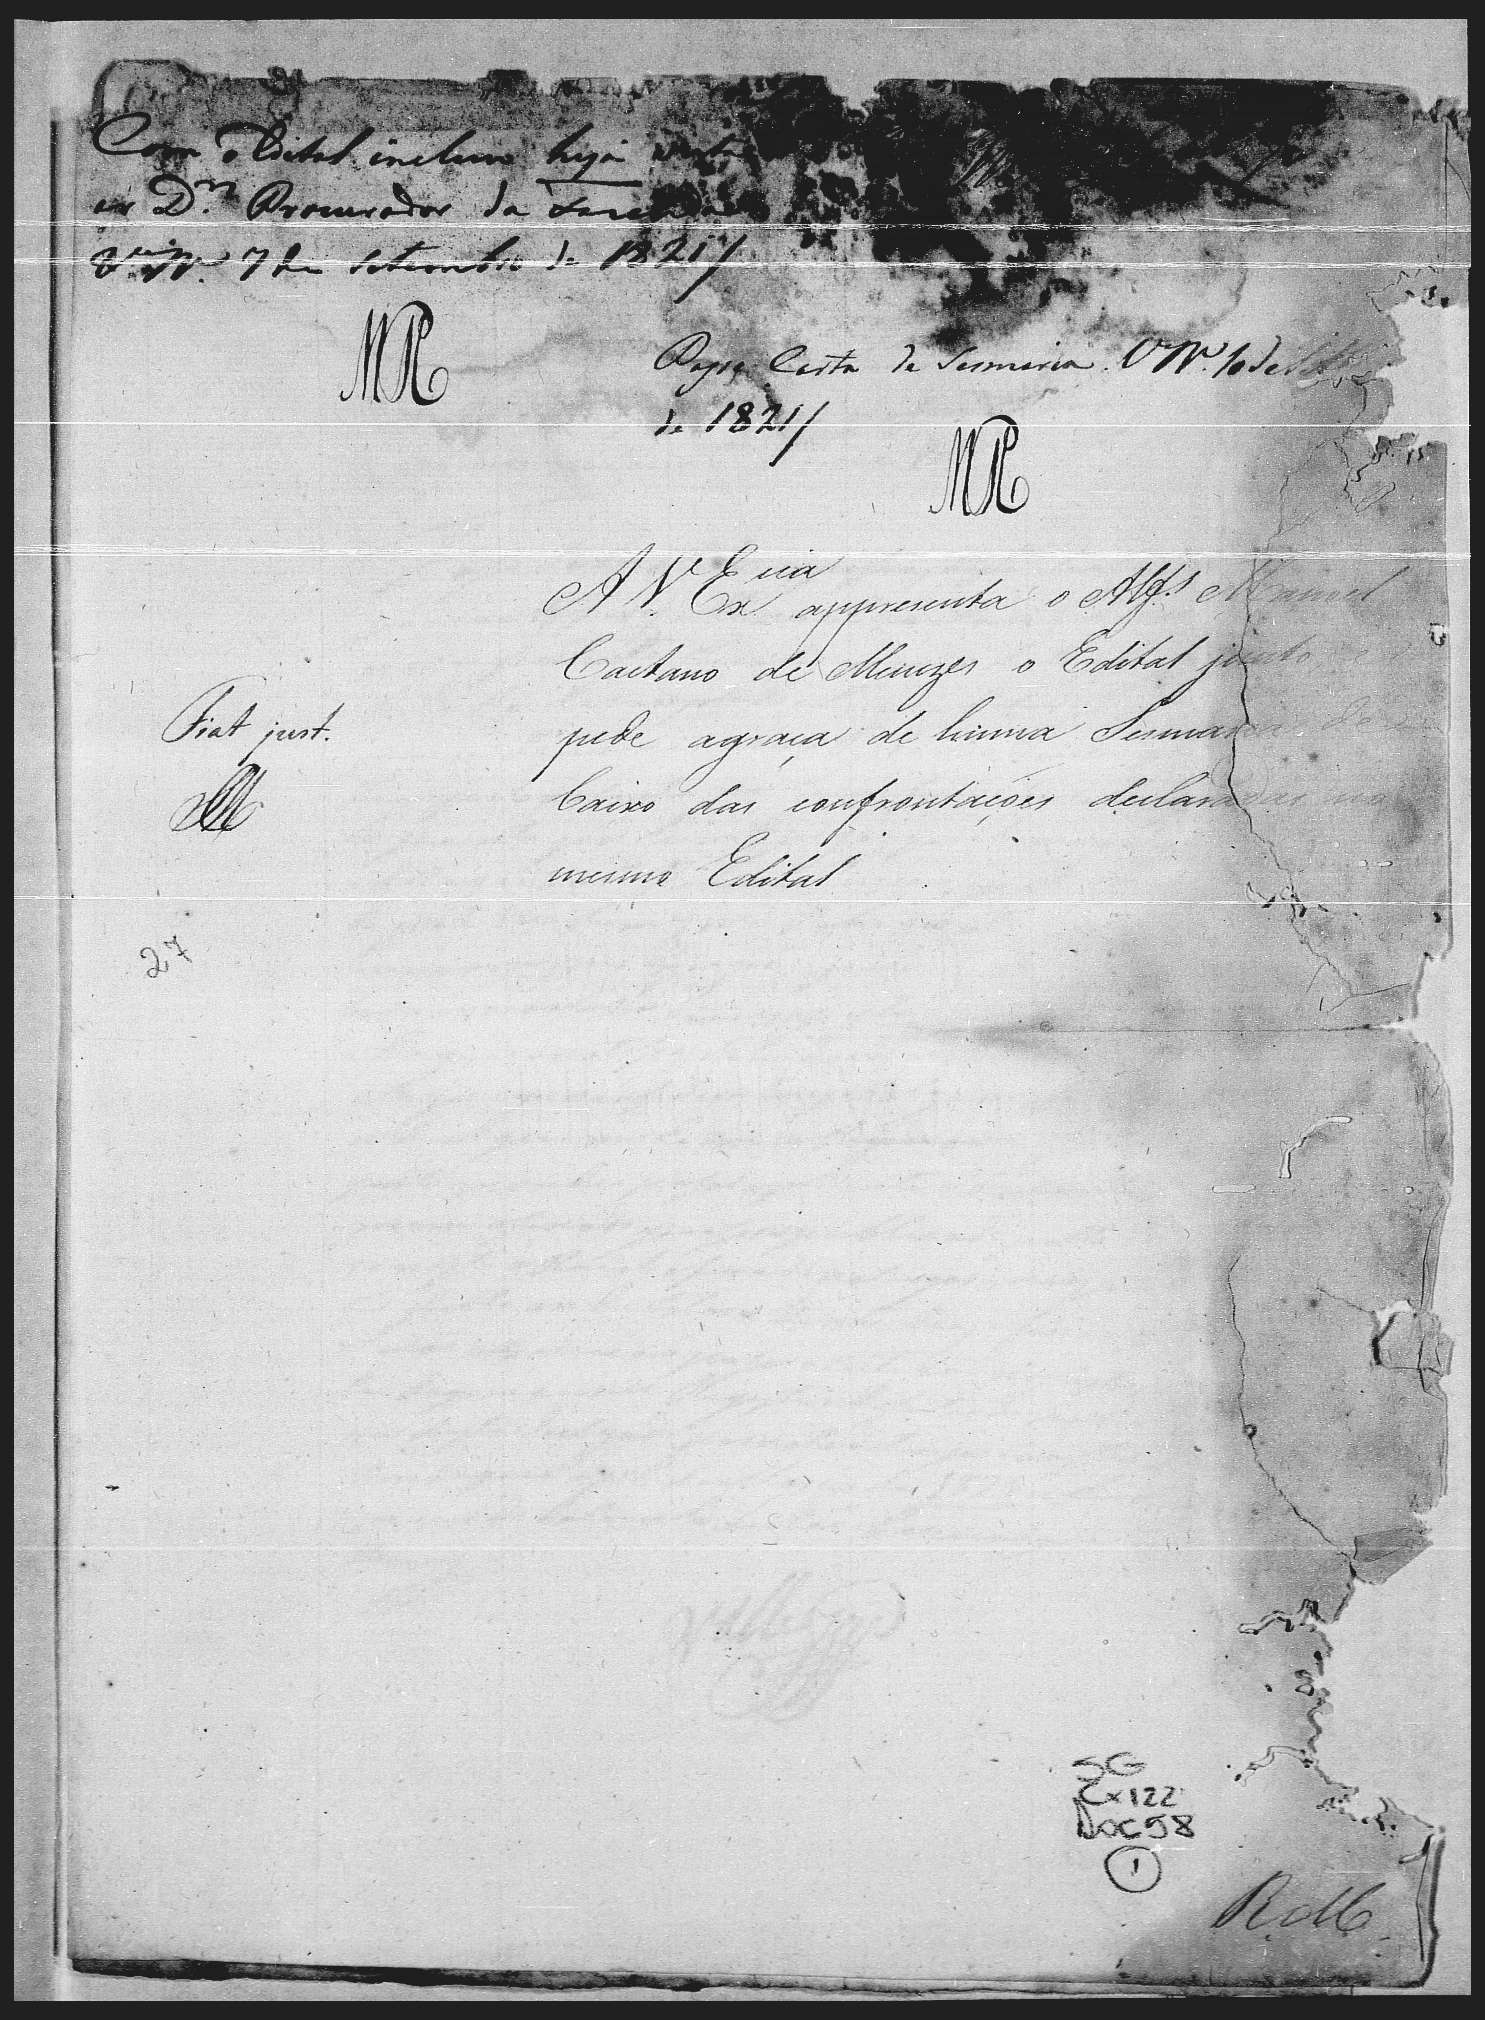 Com o Edital incluso haja vista
o Dr. Procurador da Fazenda
Va. Ra. 7 de Setembro de 1821/
MR
Passe Carta de Sesmaria. Va. Ra. 10 de
de 1821/
MR
A V. Excia appresenta o Alfs. Manoel
Caetano de Menezes o Edital junto
pede agraça de huma Sesmaria de
baixo das confrontações declaradas no
mesmo Edital
Fiat just.
27
SG
Cx 122
Doc 58
1
R. M.